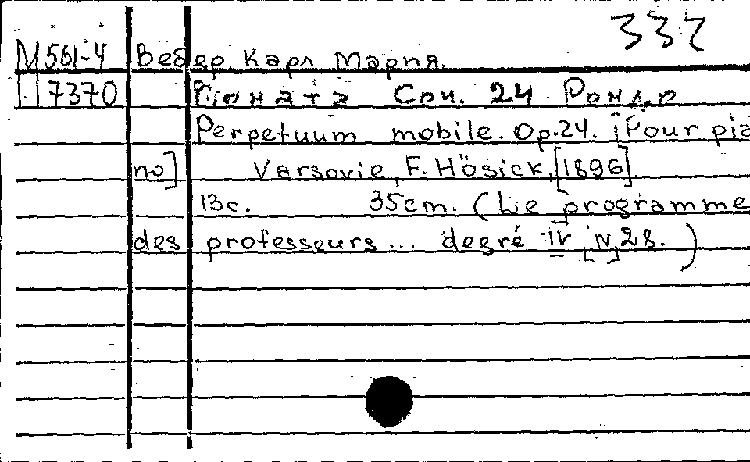 337
М 561-4 Вебер, Карл Мария.
7370 [Соната Соч. 24. Рондо]
Perpetuum mobile. Op. 24. [Pour pia
no] Varsovie, F. Hösick, [1896]
13с. 35cm. (Le programme
des professeurs... degré IV [N] 28.)